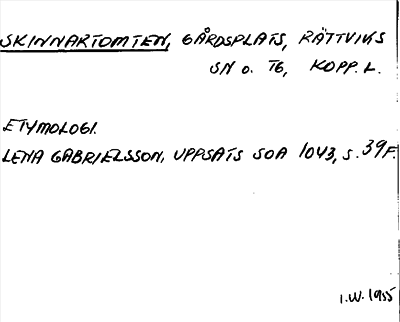 SKINNARTOMTEN, GÅRDSPLATS, RÄTTVIKS
SN o. TG, KOPP. L.
ETYMOLOGI.
LENA GABRIELSSON, UPPSATS SOA 1043, S. 39 F.
I.W. 1955